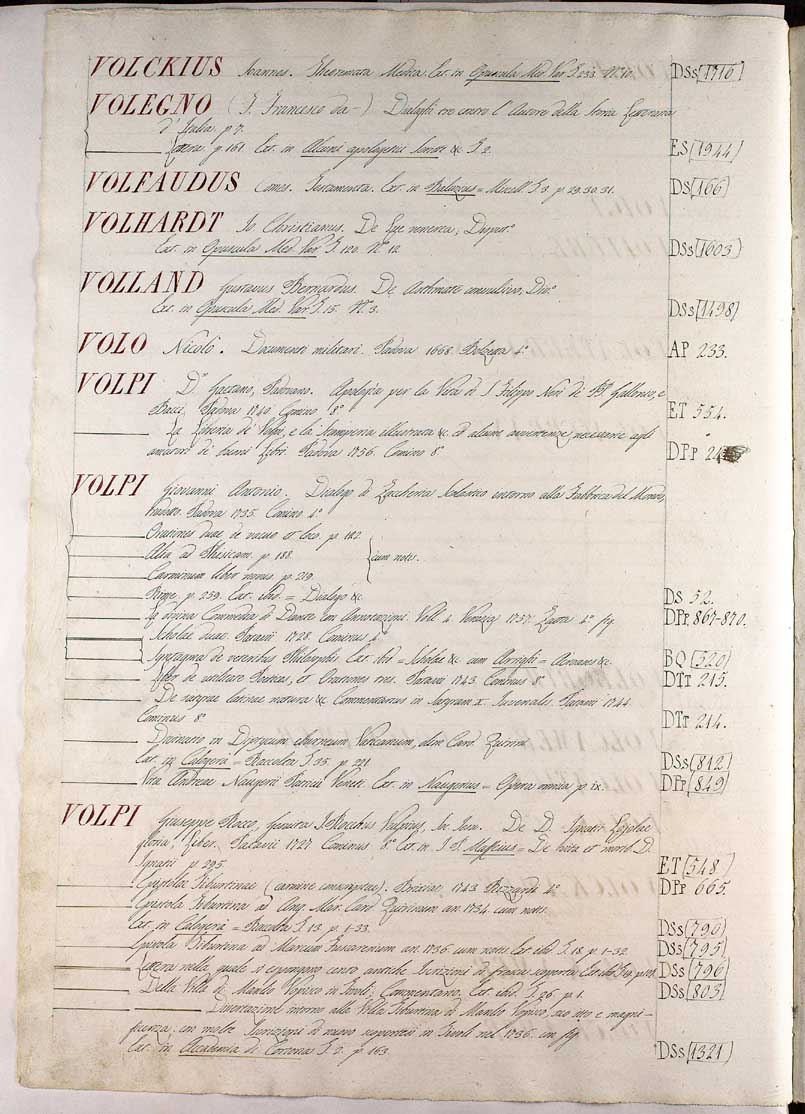 VOLCKIUS Joannes. Theoremata Medica. Ext. in Opuscula Med. Var. T. 233. N. 10. DSs (1716)
VOLEGNO (T. Francesco da-) Dialoghi tre contro l'Autore della Storia Letteraria
d'Italia. p. 7.
Lettera. p. 161. Ext. in Alcuni apologetici &c. T. 2. ES (1944)
VOLFAUDUS Comes. Testamenta. Ext. in Baluzius = Miscell. T. 3. p. 29.30.31. DS (166)
VOLHARDT Jo Christianus. De Lue venerea; Disput.º
Ext. in Opuscula Med. Var. T. 120. N.º 12. DSs (1603)
VOLLAND Gustavus Bernardus. De Asthmate convulsivo, Diss.º
Ext. in Opuscula Med. Var. T. 15. N. 3. DSs (1498)
VOLO Nicolò. Documenti militari. Padova 1668. Bolzetta 4.º AP 233.
VOLPI D. Gaetano, Padovano. Apologia per la Vita di S. Filippo Neri di Gallonio, e
Bacci. Padova 1740. Comino 8.º ET 554.
La Libreria de' Volpi, e la Stamperia illustrata &c. ed alcune avvertenze necessarie agli
amatori di buoni Libri. Padova 1756. Comino 8.º DPp
VOLPI Giovanni Antonio. Dialogo di Zaccheria Scolastico intorno alla Fabbrica del Mondo,
Padova 1735. Comino 4.º
Orationes duae de vacuo et loco. p. 182.
Alia ad Physicam. p. 188. cum notis.
Carminum liber novus. p. 219.
Rime. p. 259. Ext. ibid. = Dialogo &c. DS 52.
La divina Commedia di Dante con Annotazioni. Voll. 4. Venezia 1757. Zatta 4.º fig. DPp. 867-870.
Scholae duae. Patavii 1728. Cominus 4.º
Syntagma de veteribus Philosophis. Ext. ibid = Scholae &c. cum Arrighi = &c. BQ (520)
Liber de utilitate Poetices, et Orationes tres. Patavii 1743. Cominus 8.º DTt 215.
De satyrae latinae natura &c. Commentarius in Satyram X. Juvenalis. Patavii 1744
Cominus 8.º DTt 214.
Divinatio in Diptycum eburneum Vaticanum, idem Card. Quirini
Ext. in Calogerà = Raccolta T. 35. p. 221. DSs (812)
Vita Andreae Naugerii Patricii Veneti. Ext. in Naugerius = Opera omnia p. ix. DPp (849)
VOLPI Giuseppe Rocco, Gesuita J. Rochus Vulpius, Soc. Jesu. De D. Ignatii Lojolae
gloria; Liber. Patavii 1727 Cominus 8.º Ext. in J. P. Maffeius = De Vita et morib. D.
Ignatii p. 295. ET (548)
Epistolae Tiburtinae (carmine conscriptae). Brixiae 1743. Rizzardi 4.º DPp 665.
Epistola Tiburtina ad Ang. Mar. Card. Quirinum an. 1734. cum notis
Ext. in Calogerà = Raccolta T. 13. p. 1-33. DSs (790)
Epistola Tiburtina ad Marcum Foscarenum an. 1736. cum notis Ext. ibid. T. 18. p. 1-32. DSs (795)
Lettera nella quale si espongono antiche Iscrizioni di fresco scoperte Ext. ibid. T. 19. DSs (796)
Della Villa di Manlio Vopisco in Tivoli; Commentario. Ext. ibid. T. 26. p. 1. DSs (803)
Dissertazione intorno alla Villa Tiburtina di Manlio Vopisco, suo sito e magni-
ficenza; con molte Iscrizioni di nuovo scoperte in Tivoli nel 1736. con fig.
Ext. in Accademia di Cortona T. 2. p. 163. DSs (1321)